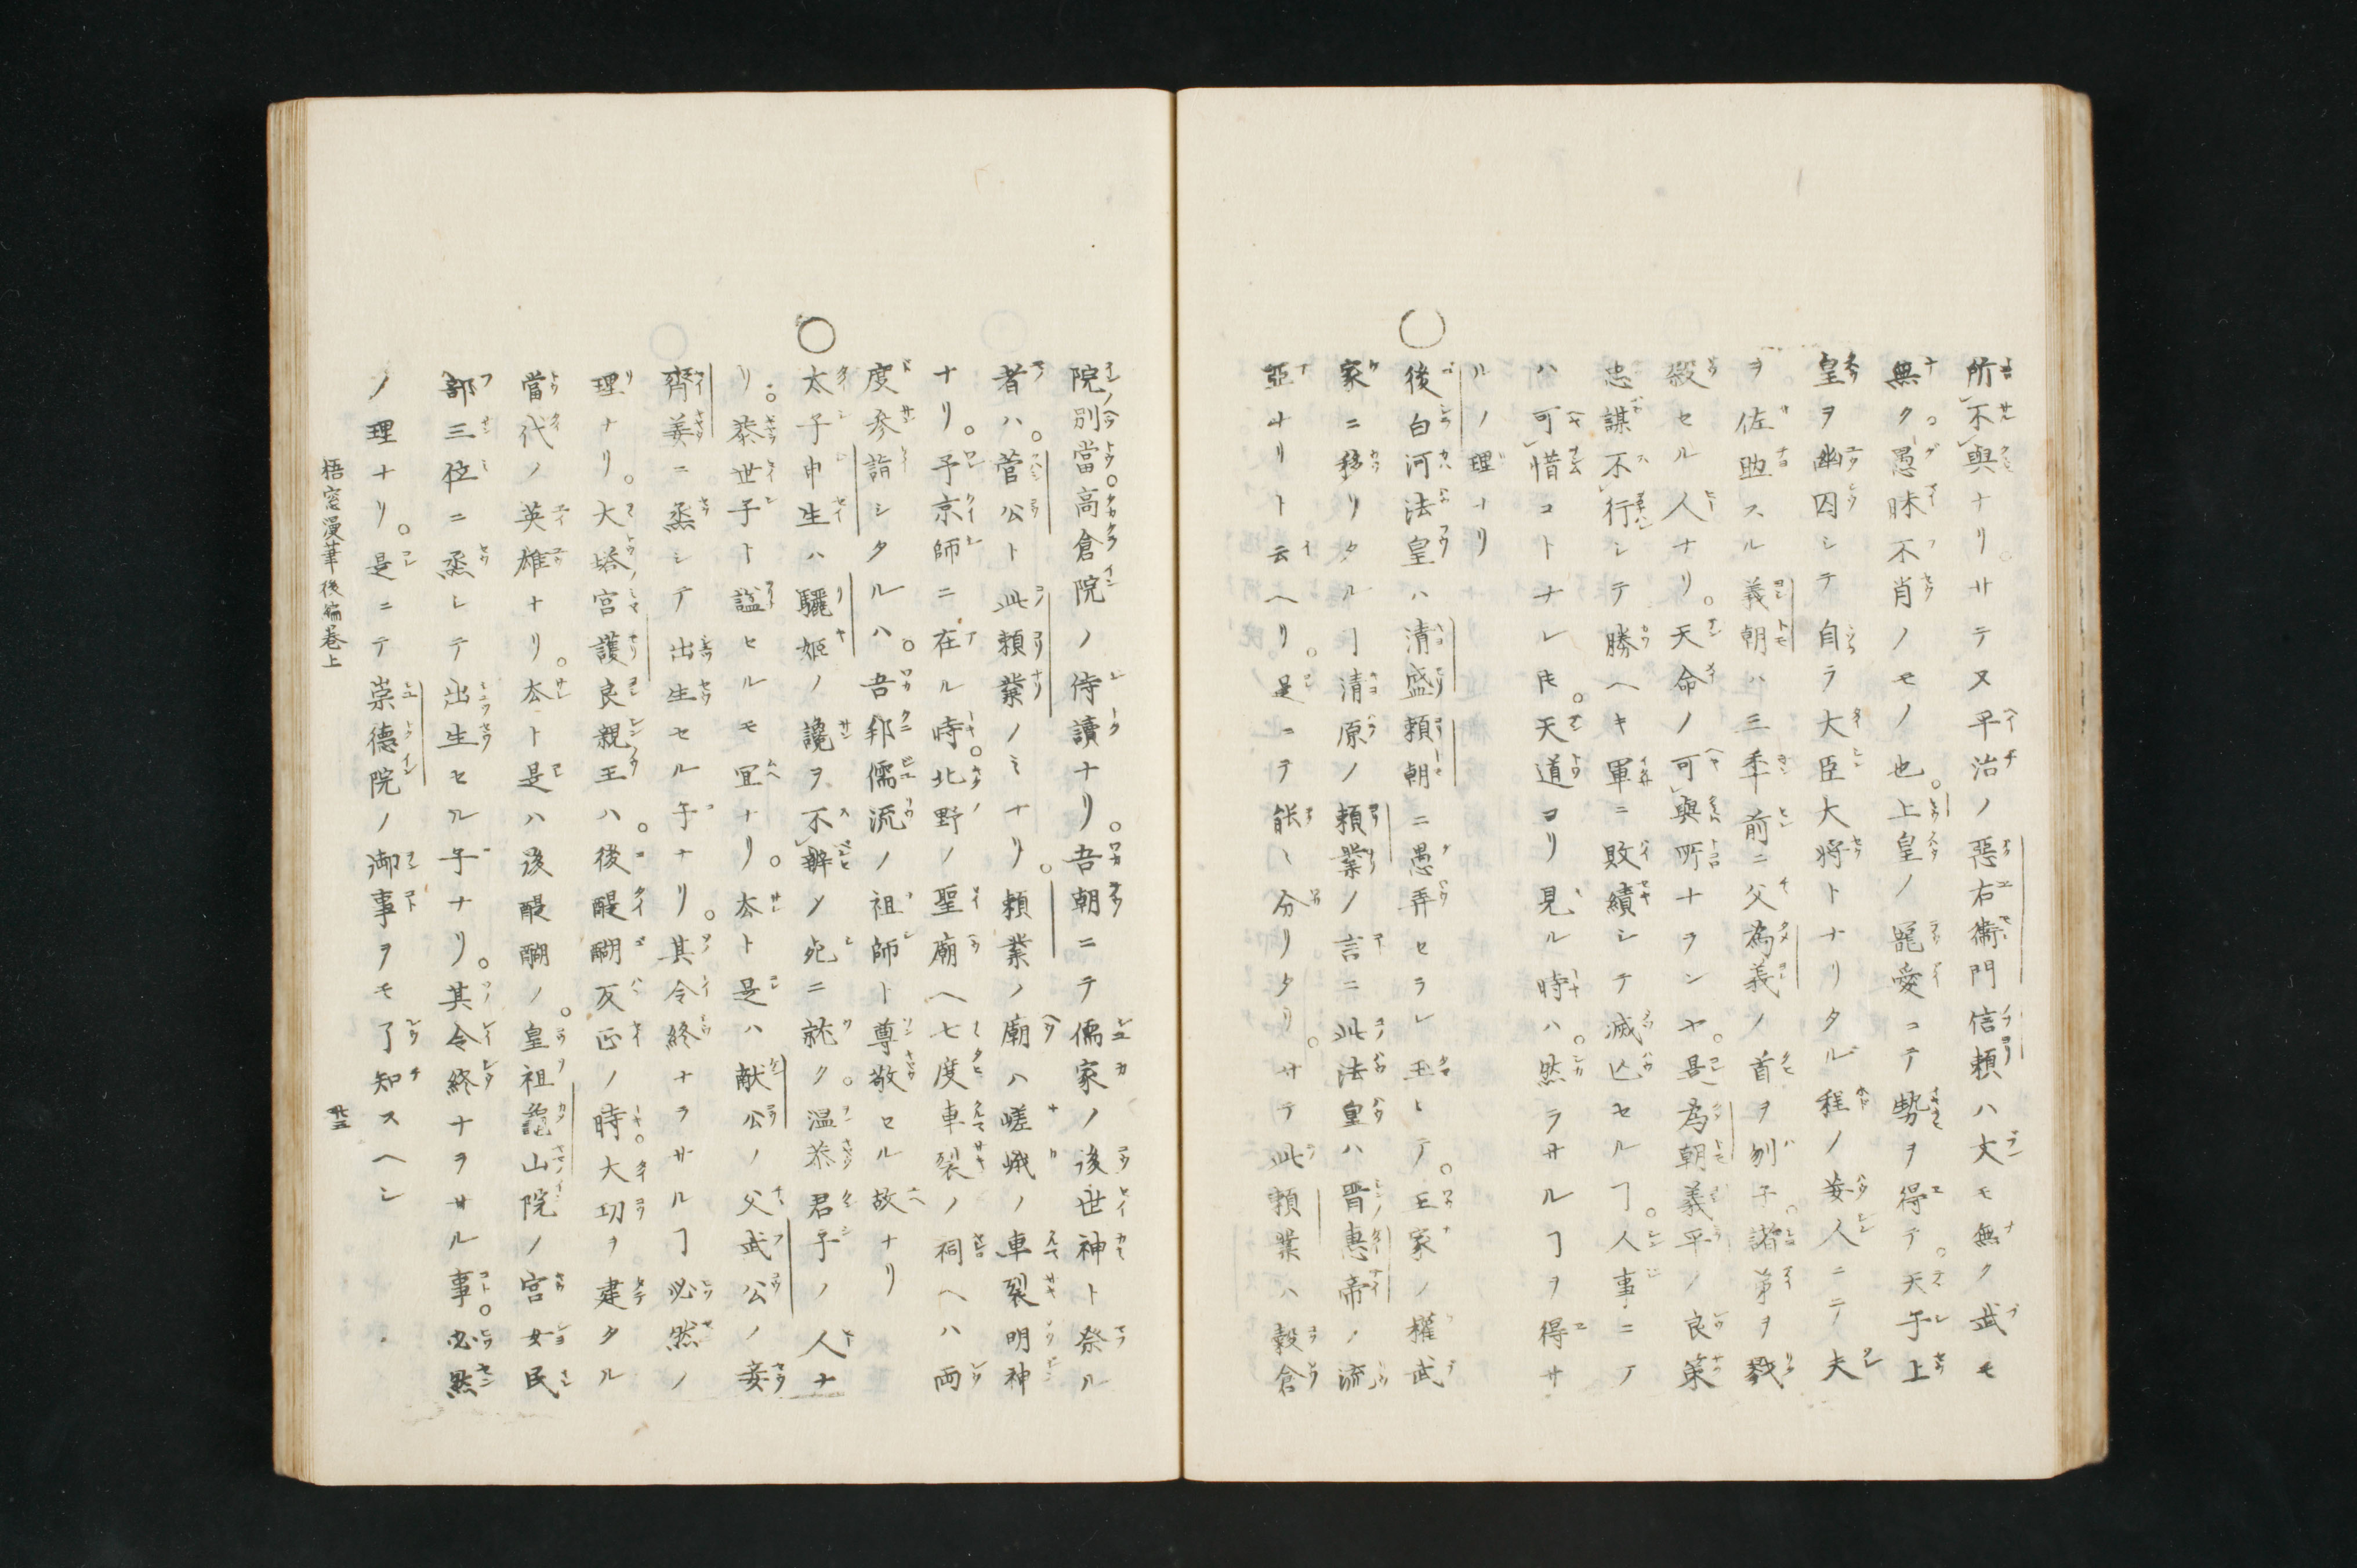 所不與ナリサテ又平治ノ惡右衞門信頼ハ文モ無ク武モ
無ク愚昧不肖ノモノ也上皇ノ寵愛ニテ勢ヲ得テ天子上
皇ヲ幽囚シテ自ラ大臣大將トナリタル程ノ妄人ニテ夫
ヲ佐助スル義朝ハ三季前ニ父為義ノ首ヲ刎子諸弟ヲ戮
殺セル人ナリ天命ノ可與所ナランヤ是為朝義平ノ良策
忠謀不行シテ勝ヘキ軍ニ敗績シテ滅亡セルヿ人事ニテ
ハ可惜コトナレ𪜈天道ヨリ見ル時ハ然ラサルヿヲ得サ
ルノ理ナリ
○後白河法皇ハ清盛頼朝ニ愚弄セラレ玉ヒテ王家ノ權武
家ニ移リタルヿ清原ノ頼業ノ言ニ此法皇ハ晋惠帝ノ流
亞ナリト云ヘリ是ニテ能ク分リタリサテ此頼業ハ穀倉
院別當高倉院ノ侍讀ナリ吾朝ニテ儒家ノ後世神ト祭ル
者ハ菅公ト此頼業ノミナリ頼業ノ廟ハ嵯峨ノ車裂明神
ナリ予京師ニ在ル時北野ノ聖廟ヘ七度車裂ノ祠ヘハ両
度參詣シタルハ吾邦儒流ノ祖師ト尊敬セル故ナリ
○太子申生ハ驪姫ノ讒ヲ不辨シ死ニ就ク温恭君子ノ人ナ
リ恭世子ト謚セルモ宜ナリ夲ト是ハ献公ノ父武公ノ妾
齊姜ニ烝シテ出生セル子ナリ其令終ナラサルヿ必然ノ
理ナリ大塔宮護良親王ハ後醍醐反正ノ時大功ヲ建タル
當代ノ英雄ナリ夲ト是ハ後醍醐ノ皇祖龜山院ノ宮女民
部三位ニ烝シテ出生セル子ナリ其令終ナラサル事必然
ノ理ナリ是ニテ崇德院ノ御事ヲモ了知スヘシ
梧窓漫筆後編巻上
廿三